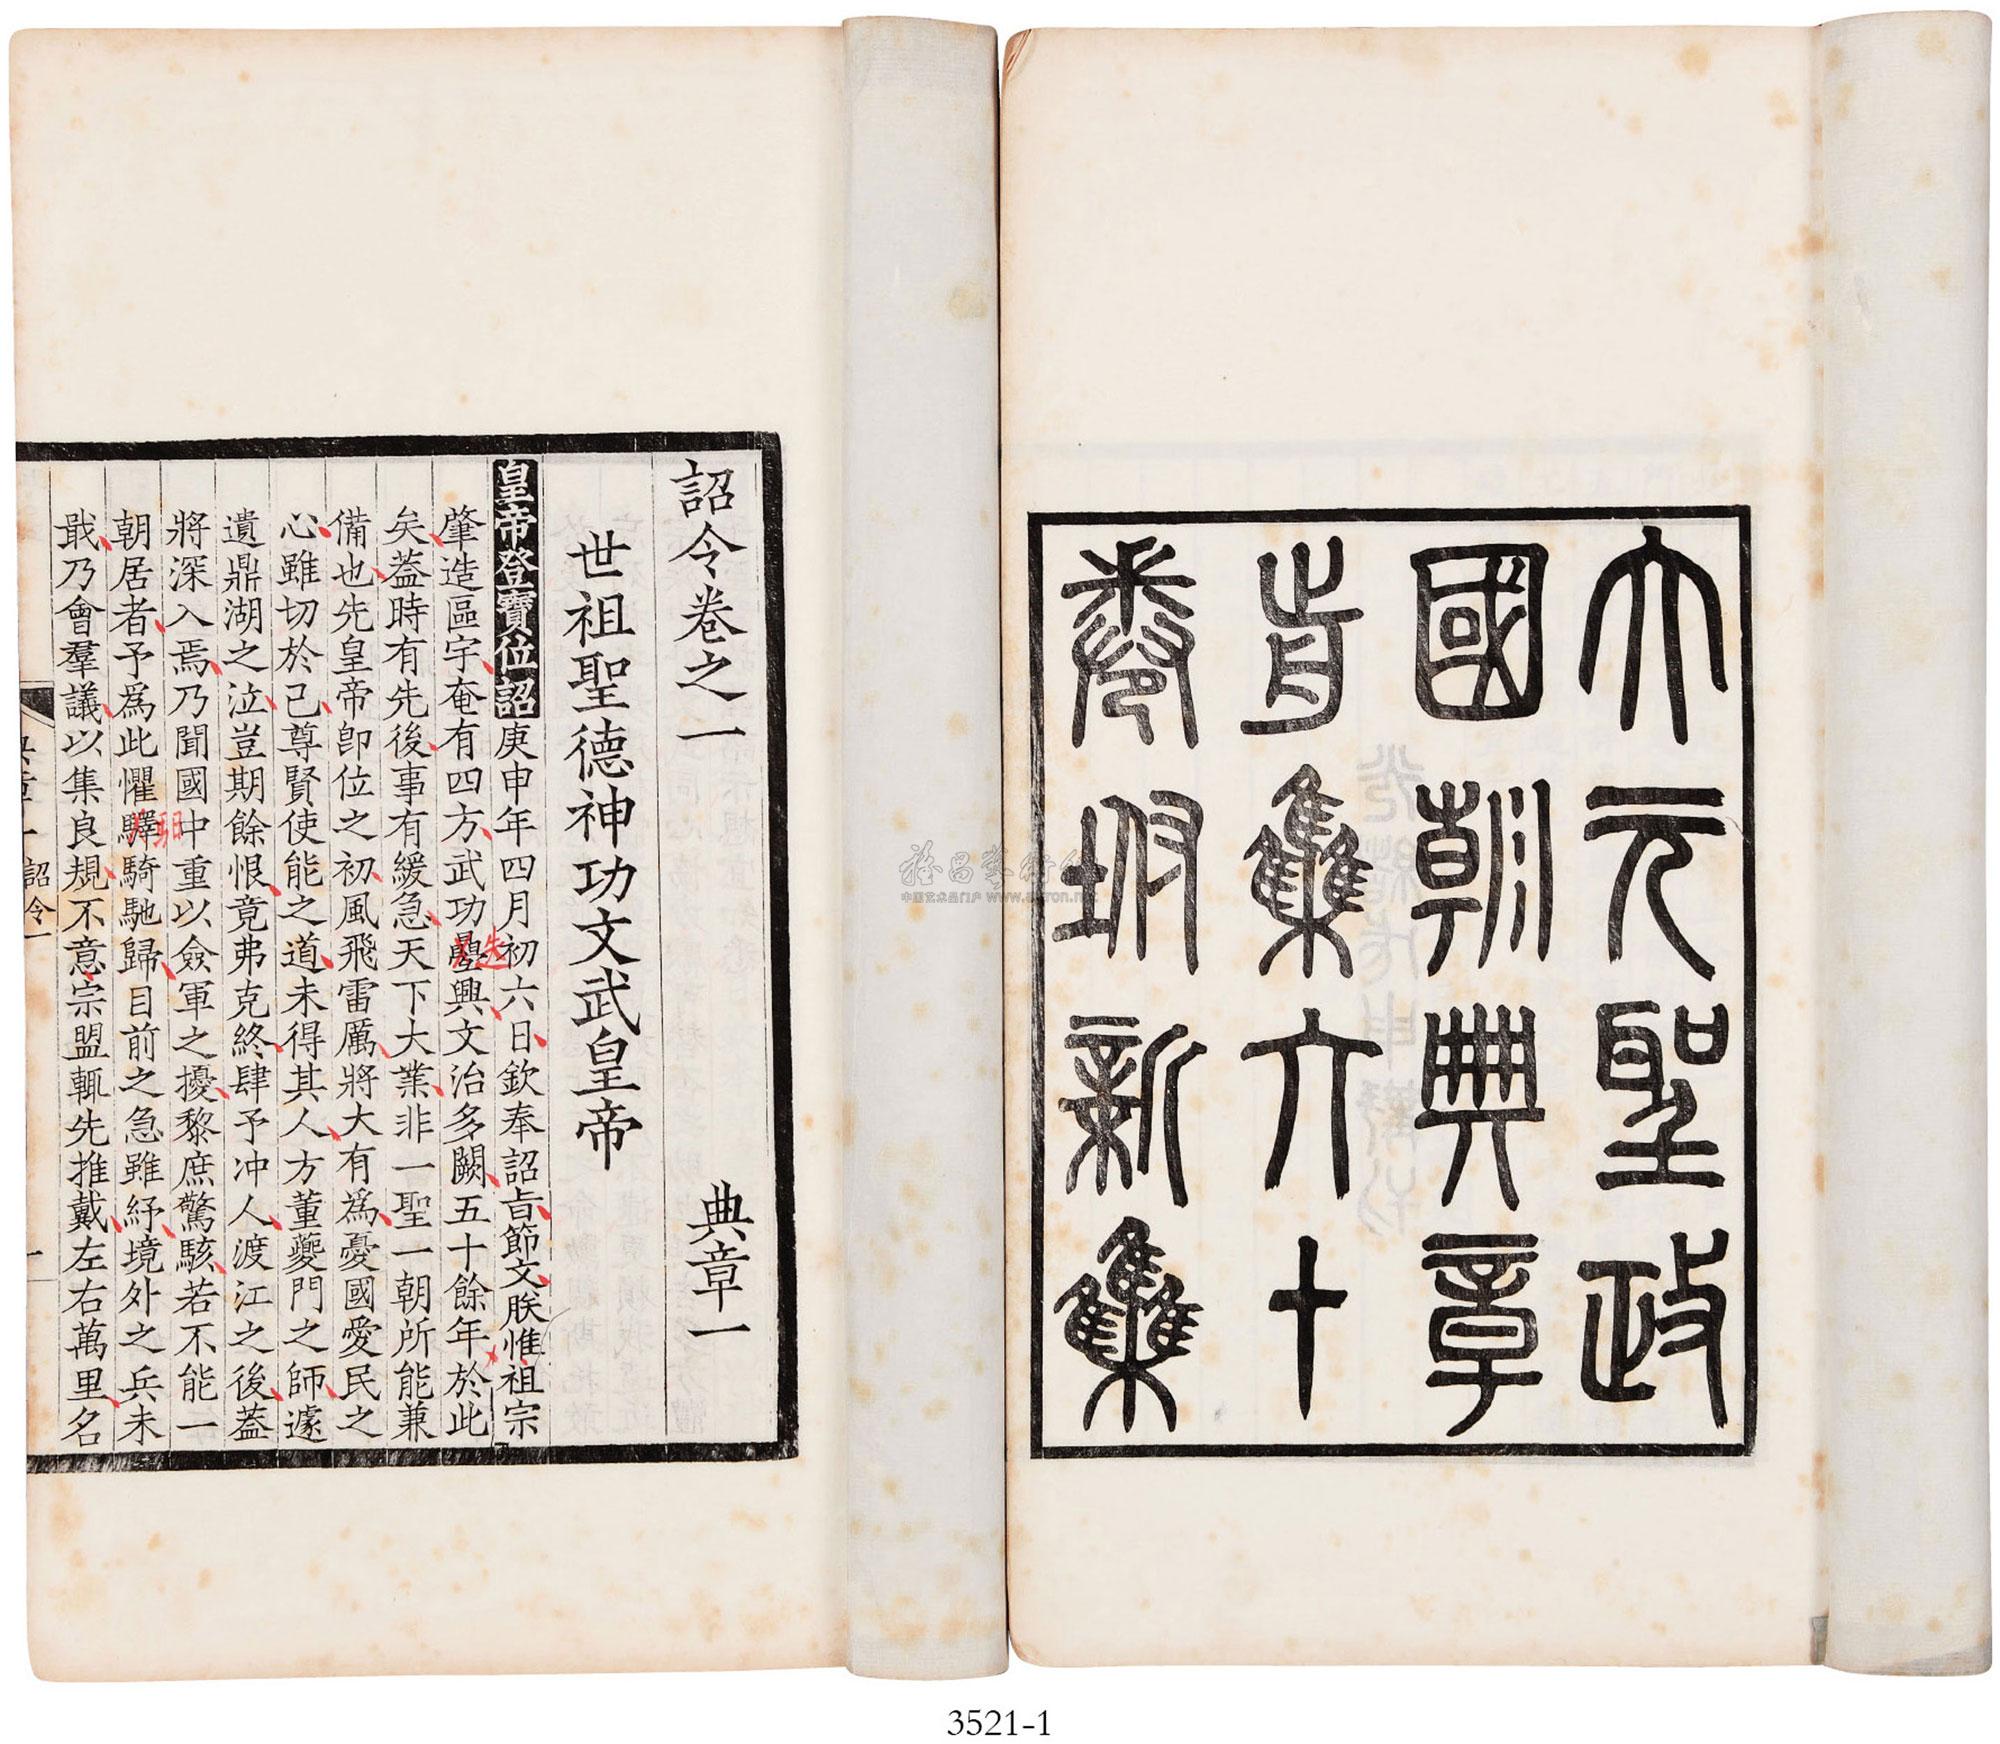 大元聖政
國朝典章
前集六十
卷坿新集
詔令卷之一 典章一
世祖聖德神功文武皇帝
皇帝登寶位詔庚申年四月初六日欽奉詔旨節文朕惟祖宗
肇造區宇奄有四方武功疊興文治多闕五十餘年於此
迭
矣蓋時有先後事有緩急天下大業非一聖一朝所能兼
備也先皇帝卽位之初風飛雷厲將大有爲憂國愛民之
心雖切於己尊賢使能之道未得其人方董夔門之師遽
遺鼎湖之泣豈期餘恨竟弗克終肆予冲人渡江之後蓋
將深入焉乃聞國中重以僉軍之擾黎庶驚駭若不能一
朝居者予爲此懼驛騎馳歸目前之急雖紓境外之兵未
馹
戢乃會羣議以集良規不意宗盟輒先推戴左右萬里名
詔令一
一
中国艺术品门户 www.artron.net
3521-1